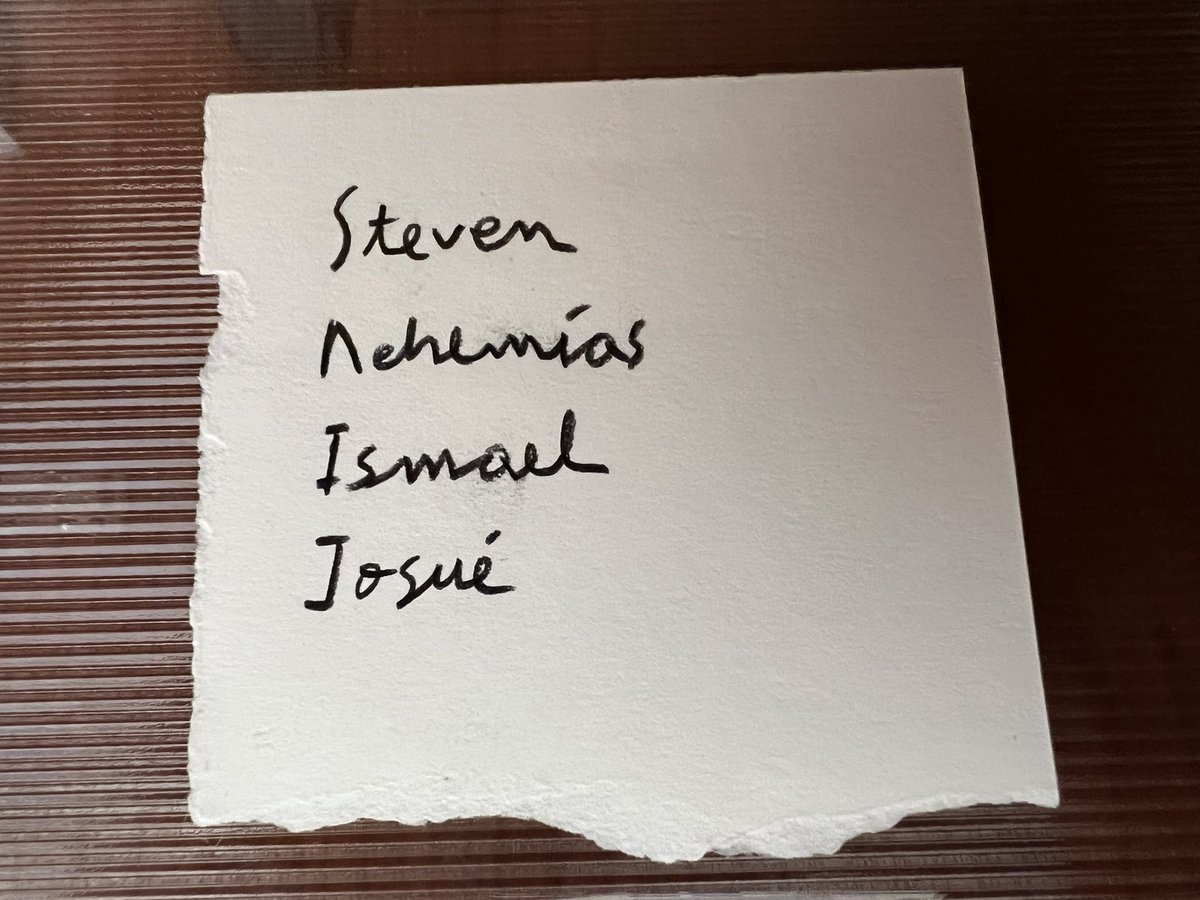 Steven
Nehemías
Ismael
Josué